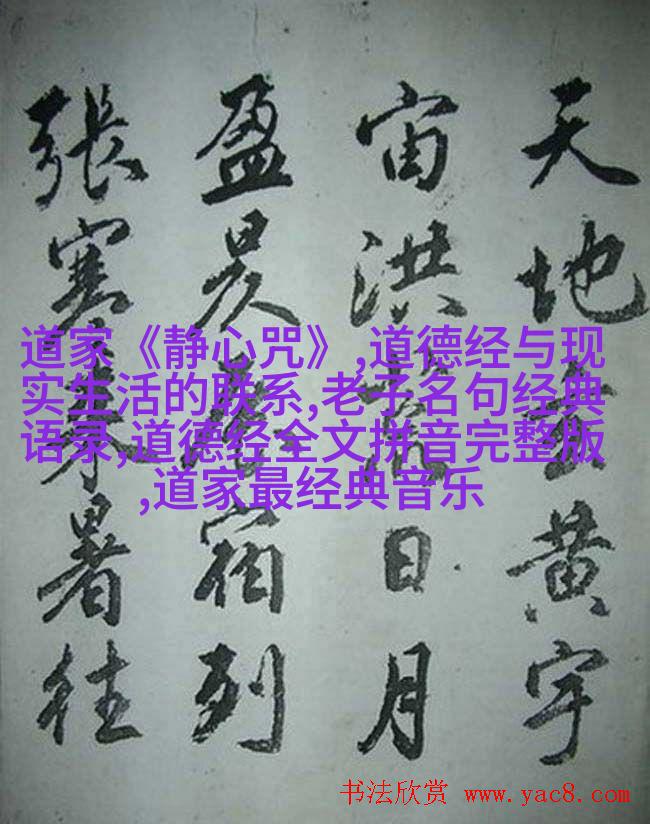 天地玄黄宇
宙洪荒日月
盈昃辰宿列
張寒来暑往
道家《静心咒》,道德经与现
实生活的联系,老子名句经典
语录,道德经全文拼音完整版
,道家最经典音乐
书法欣赏 www.yac8.com